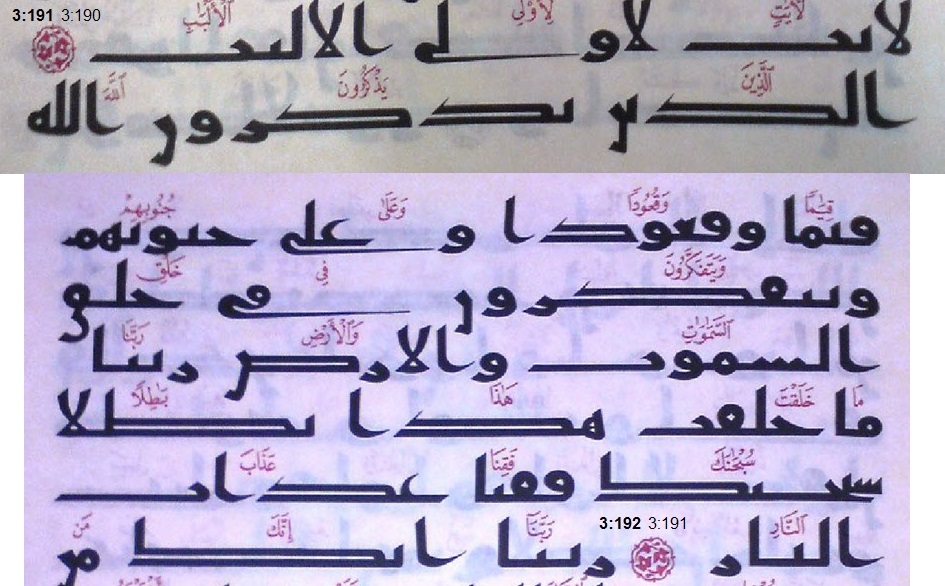 3:191 3:190
لَأٓيَٰتٍ لِّأُوْلِى ٱلْأَلْبَٰبِ
لايت لاولى الالبب
ٱلَّذِينَ يَذْكُرُونَ ٱللَّهَ
الذين يذكرون الله
قِيَٰمًا وَقُعُودًا وَعَلَىٰ جُنُوبِهِمْ
قيما وقعودا وعلى جنوبهم
وَيَتَفَكَّرُونَ فِى خَلْقِ
ويتفكرون فى خلق
ٱلسَّمَٰوَٰتِ وَٱلْأَرْضِ رَبَّنَا
السموت والارض ربنا
مَا خَلَقْتَ هَٰذَا بَٰطِلًا
ما خلقت هذا بطلا
سُبْحَٰنَكَ فَقِنَا عَذَابَ
سبحنك فقنا عذاب
ٱلنَّارِ 3:192 3:191 رَبَّنَآ إِنَّكَ مَن
النار ربنا انك من